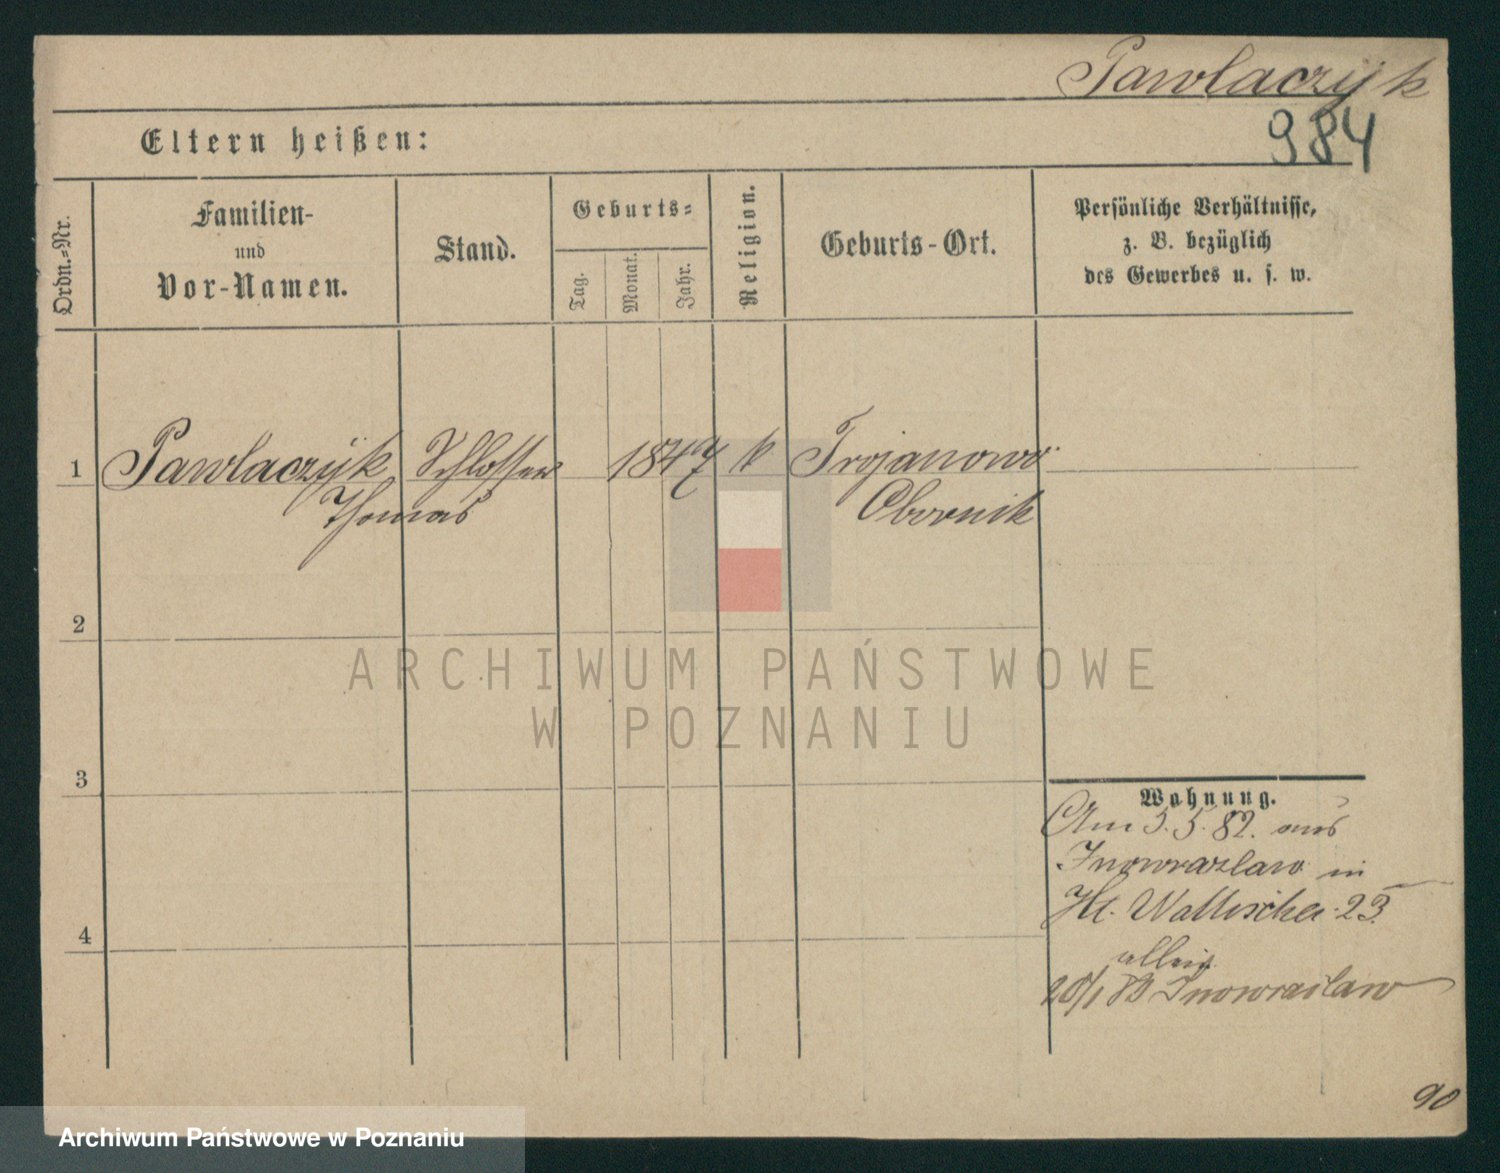 Pawlaczÿk
984
Eltern heißen:
Ordn.-Nr.
Familien-
und
Vor-Namen.
Stand.
Geburts-
Tag.
Monat.
Jahr.
Religion.
Geburts-Ort.
Persönliche Verhältnisse,
z. B. bezüglich
des Gewerbes u. s. w.
1 Pawlaczÿk Schlosser 1847 k Trojanowo
Thomas Obornik
2
3
4
Wohnung.
Am 5.5.82. aus
Inowrazlaw in
Wallischei 23
allein
20/1 83 Inowrazlaw
90
ARCHIWUM PAŃSTWOWE
W POZNANIU
Archiwum Państwowe w Poznaniu